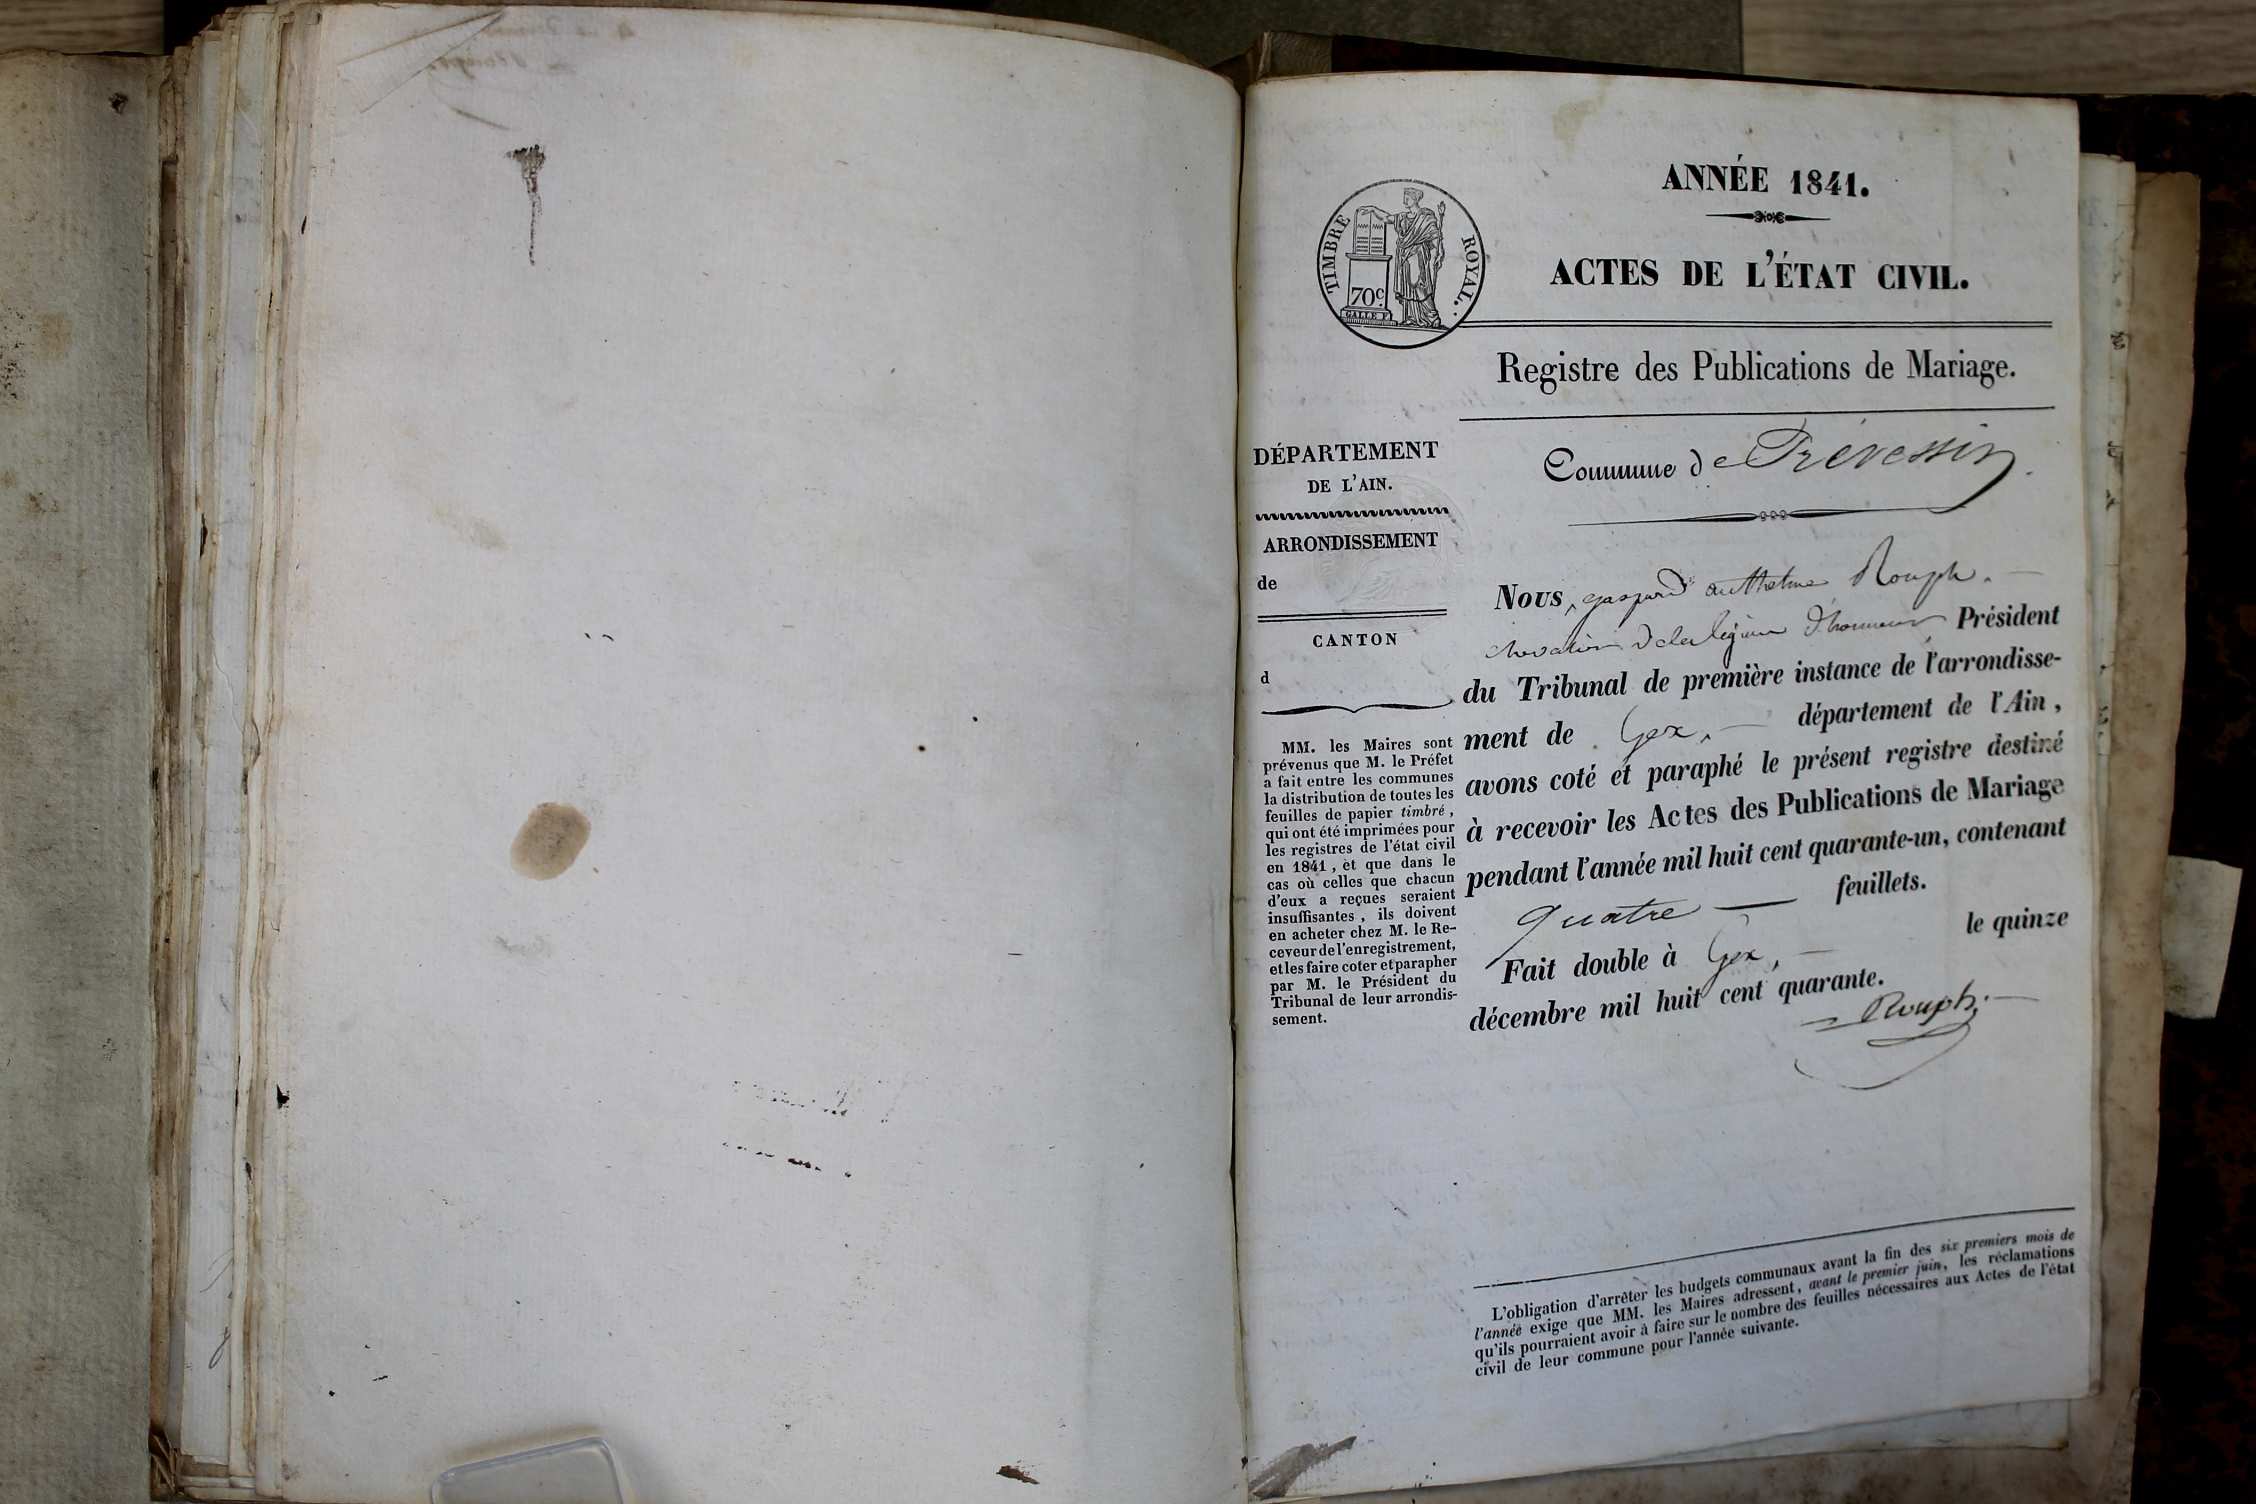 ANNÉE 1841.
TIMBRE ROYAL.
70c.
GALLE F.
ACTES DE L'ÉTAT CIVIL.
Registre des Publications de Mariage.
Commune de Prévessin
DÉPARTEMENT
DE L'AIN.
ARRONDISSEMENT
de
CANTON
d
MM. les Maires sont
prévenus que M. le Préfet
a fait entre les communes
la distribution de toutes les
feuilles de papier timbré,
qui ont été imprimées pour
les registres de l'état civil
en 1841, et que dans le
cas où celles que chacun
d'eux a reçues seraient
insuffisantes, ils doivent
en acheter chez M. le Re-
ceveur de l'enregistrement,
et les faire coter et parapher
par M. le Président du
Tribunal de leur arrondis-
sement.
Nous, gaspard anthelme Rouph.
chevalier de la légion d'honneur Président
du Tribunal de première instance de l'arrondisse-
ment de Gex, département de l'Ain,
avons coté et paraphé le présent registre destiné
à recevoir les Actes des Publications de Mariage
pendant l'année mil huit cent quarante-un, contenant
quatre feuillets.
Fait double à Gex, le quinze
décembre mil huit cent quarante.
Rouph.
L'obligation d'arrêter les budgets communaux avant la fin des six premiers mois de
l'année exige que MM. les Maires adressent, avant le premier juin, les réclamations
qu'ils pourraient avoir à faire sur le nombre des feuilles nécessaires aux Actes de l'état
civil de leur commune pour l'année suivante.